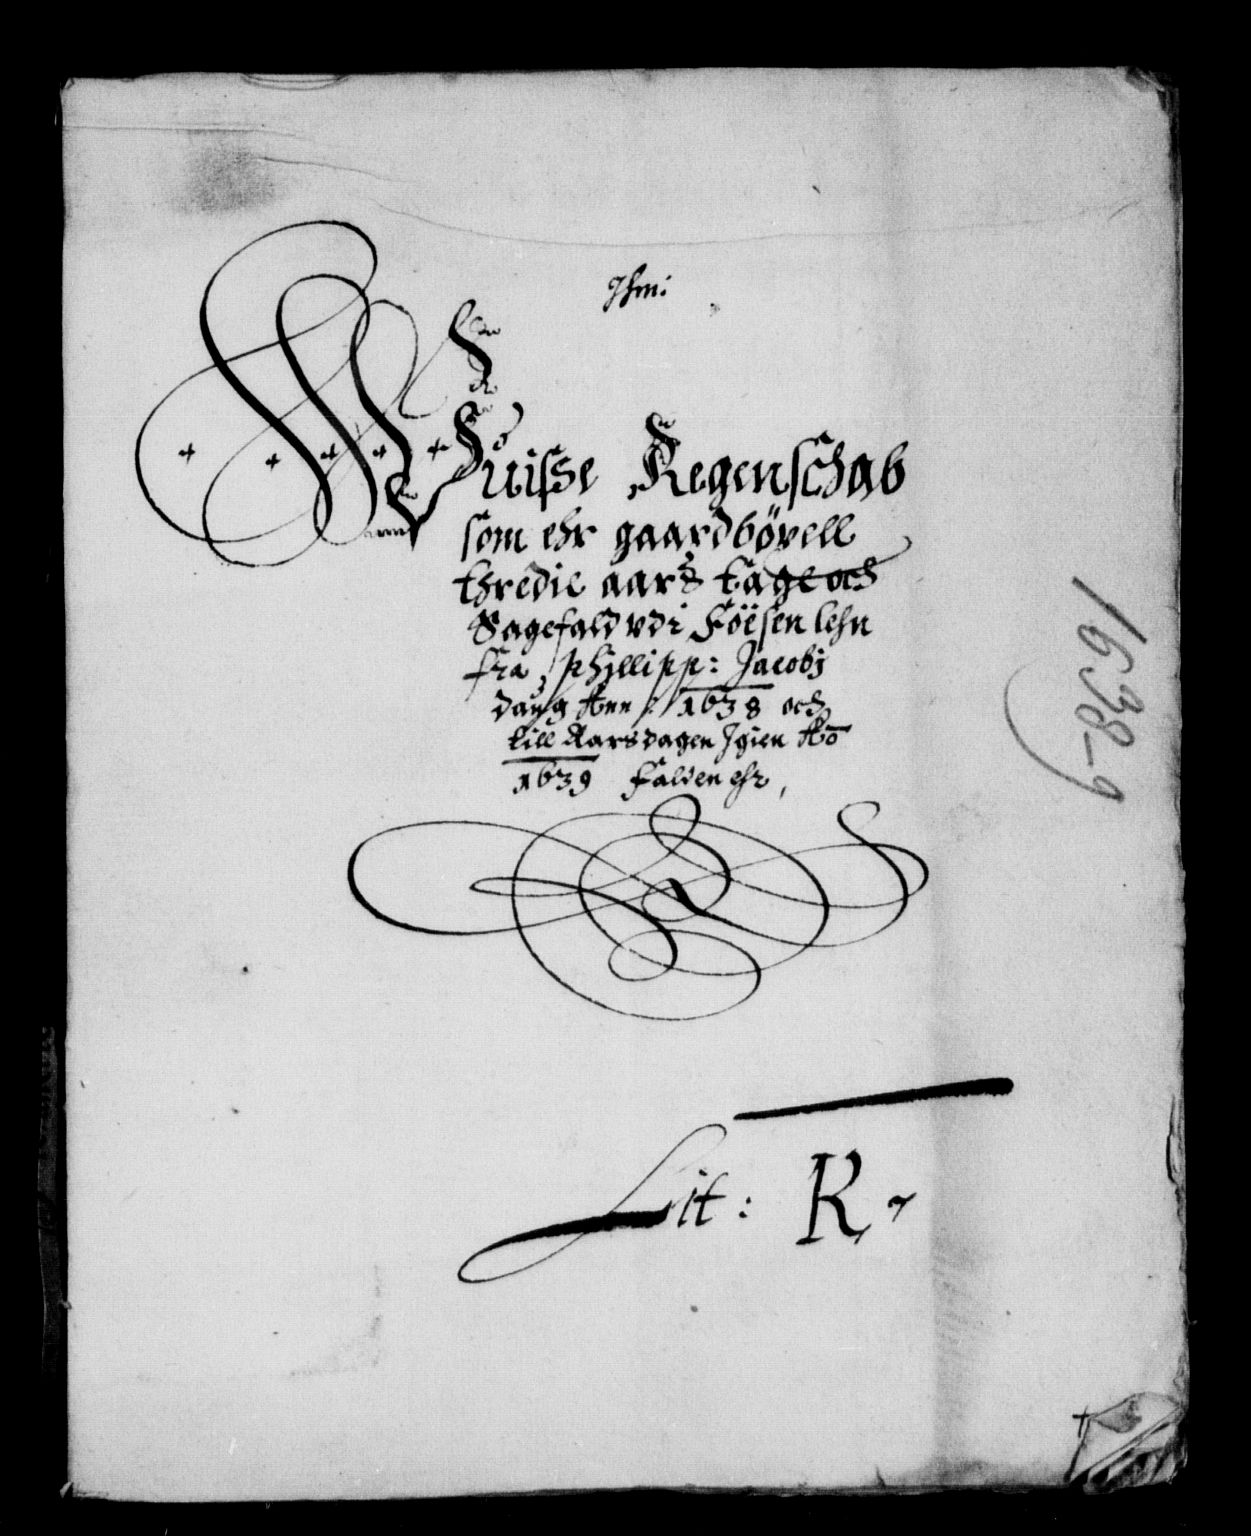 Ihm:
Vuisse Regenschab
som ehr gaardbövell
thredie aars tage och
Sagefald vdi Föesen lehn
fra Phillipp: Jacobj
daug Ann: 1638 och
till Aarsdagen Igien Aō
1639 falden ehr,
Lit: K
1638-9